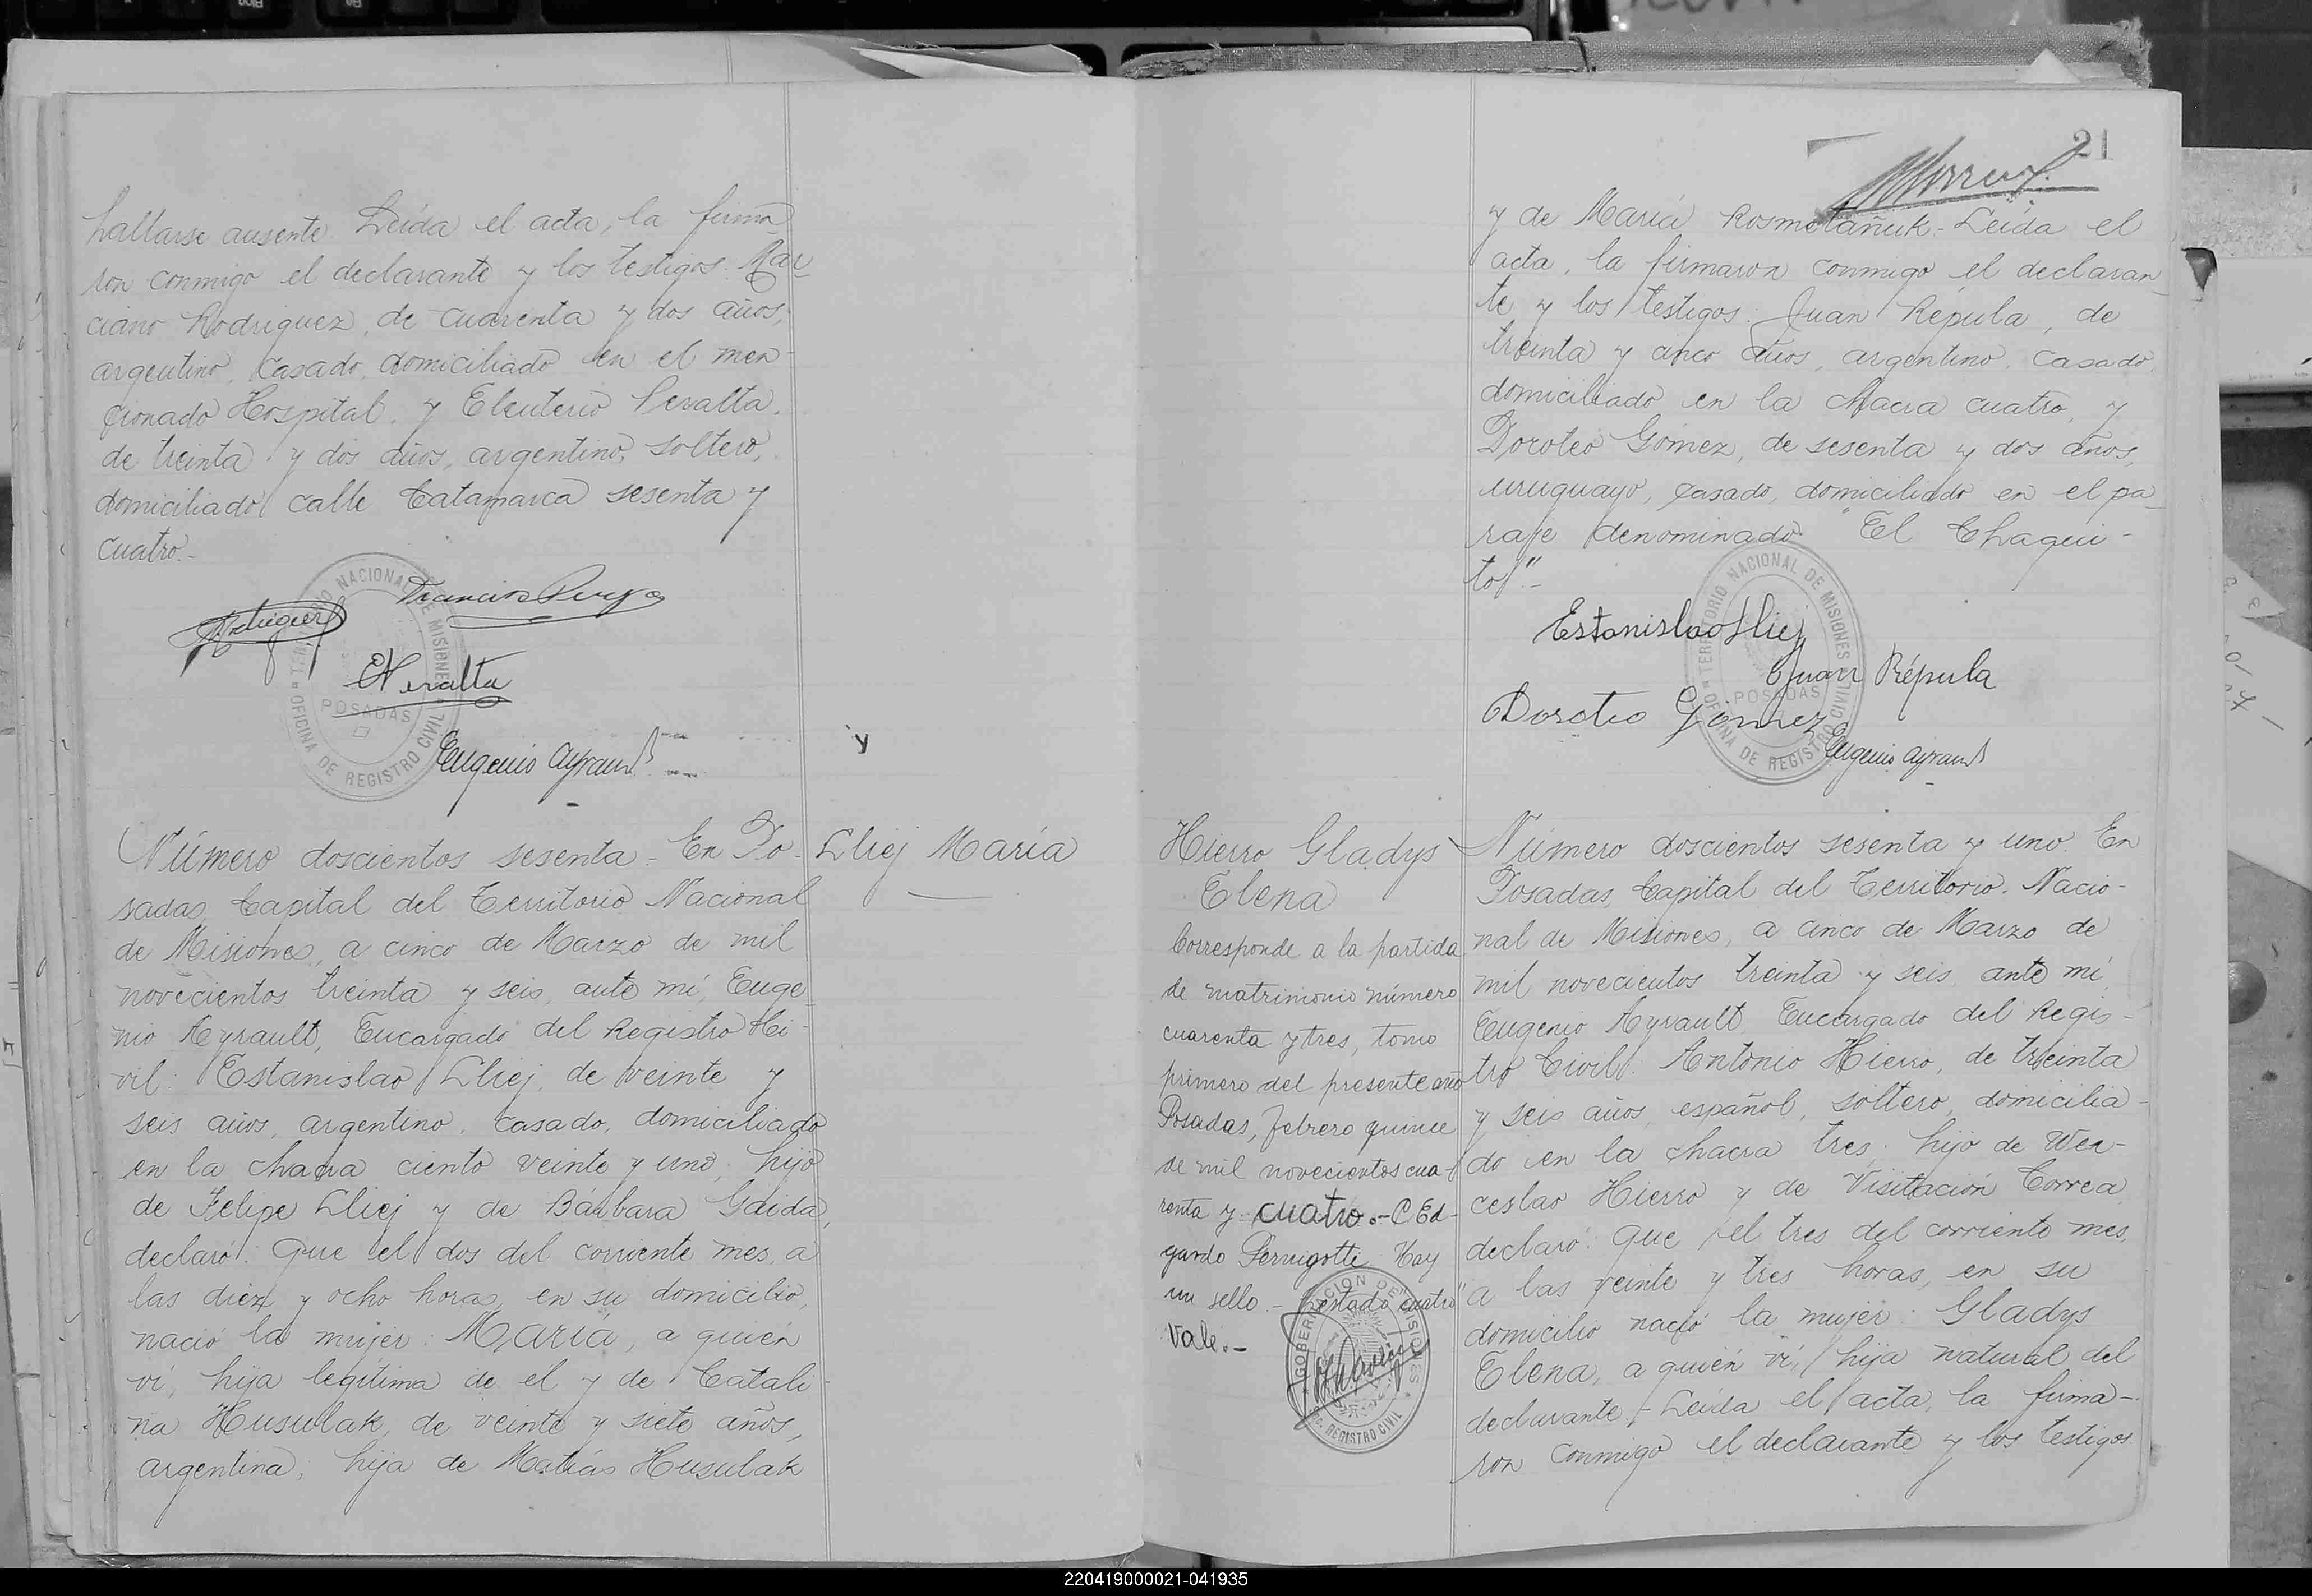 hallarse ausente. Leída el acta, la firma-
ron conmigo el declarante y los testigos: Mar-
ciano Rodriguez, de cuarenta y dos años,
argentino, casado, domiciliado en el men-
cionado Hospital, y Eleuterio Peralta,
de treinta y dos años, argentino, soltero,
domiciliado calle Catamarca sesenta y
cuatro.-
TERRITORIO NACIONAL DE MISIONES
OFICINA DE REGISTRO CIVIL
POSADAS
E Peralta
Eugenio Ayrault
y
Número doscientos sesenta.- En Po-
sadas, Capital del Territorio Nacional
de Misiones, a cinco de Marzo de mil
novecientos treinta y seis, ante mí, Euge-
nio Ayrault, Encargado del Registro Ci-
vil: Estanislao Lliej, de veinte y
seis años, argentino, casado, domiciliado
en la chacra ciento veinte y uno, hijo
de Felipe Lliej y de Bárbara Gaida,
declaró: Que el dos del corriente mes, a
las diez y ocho horas, en su domicilio,
nació la mujer: María, a quién
ví, hija legítima de el y de Catali-
na Husulak, de veinte y siete años,
argentina, hija de Matías Husulak
Lliej María
21
y de María Kosmotañuk.- Leída el
acta, la firmaron conmigo el declaran-
te y los testigos: Juan Répula, de
treinta y cinco años, argentino, casado,
domiciliado en la chacra cuatro, y
Doroteo Gómez, de sesenta y dos años,
uruguayo, casado, domiciliado en el pa-
raje denominado "El Chaqui-
to".-
TERRITORIO NACIONAL DE MISIONES
OFICINA DE REGISTRO CIVIL
POSADAS
Estanislao Lliej
Juan Répula
Doroteo Gómez
Eugenio Ayrault
Hierro Gladys
Elena
Corresponde a la partida
de matrimonio número
cuarenta y tres, tomo
primero del presente año
Posadas, febrero quince
de mil novecientos cua-
renta y cuatro.- C Ed-
gardo Pernigotte Hay
un sello.- Testado "cuatro"
Vale.-
GOBERNACION DE MISIONES
REGISTRO CIVIL
Número doscientos sesenta y uno. En
Posadas, Capital del Territorio Nacio-
nal de Misiones, a cinco de Marzo de
mil novecientos treinta y seis, ante mí,
Eugenio Ayrault, Encargado del Regis-
tro Civil: Antonio Hierro, de treinta
y seis años, español, soltero, domicilia-
do en la chacra tres, hijo de Wen-
ceslao Hierro y de Visitación Correa,
declaró: Que el tres del corriente mes,
a las veinte y tres horas, en su
domicilio nació la mujer: Gladys
Elena, a quién ví, hija natural del
declarante.- Leída el acta, la firma-
ron conmigo el declarante y los testigos:
220419000021-041935